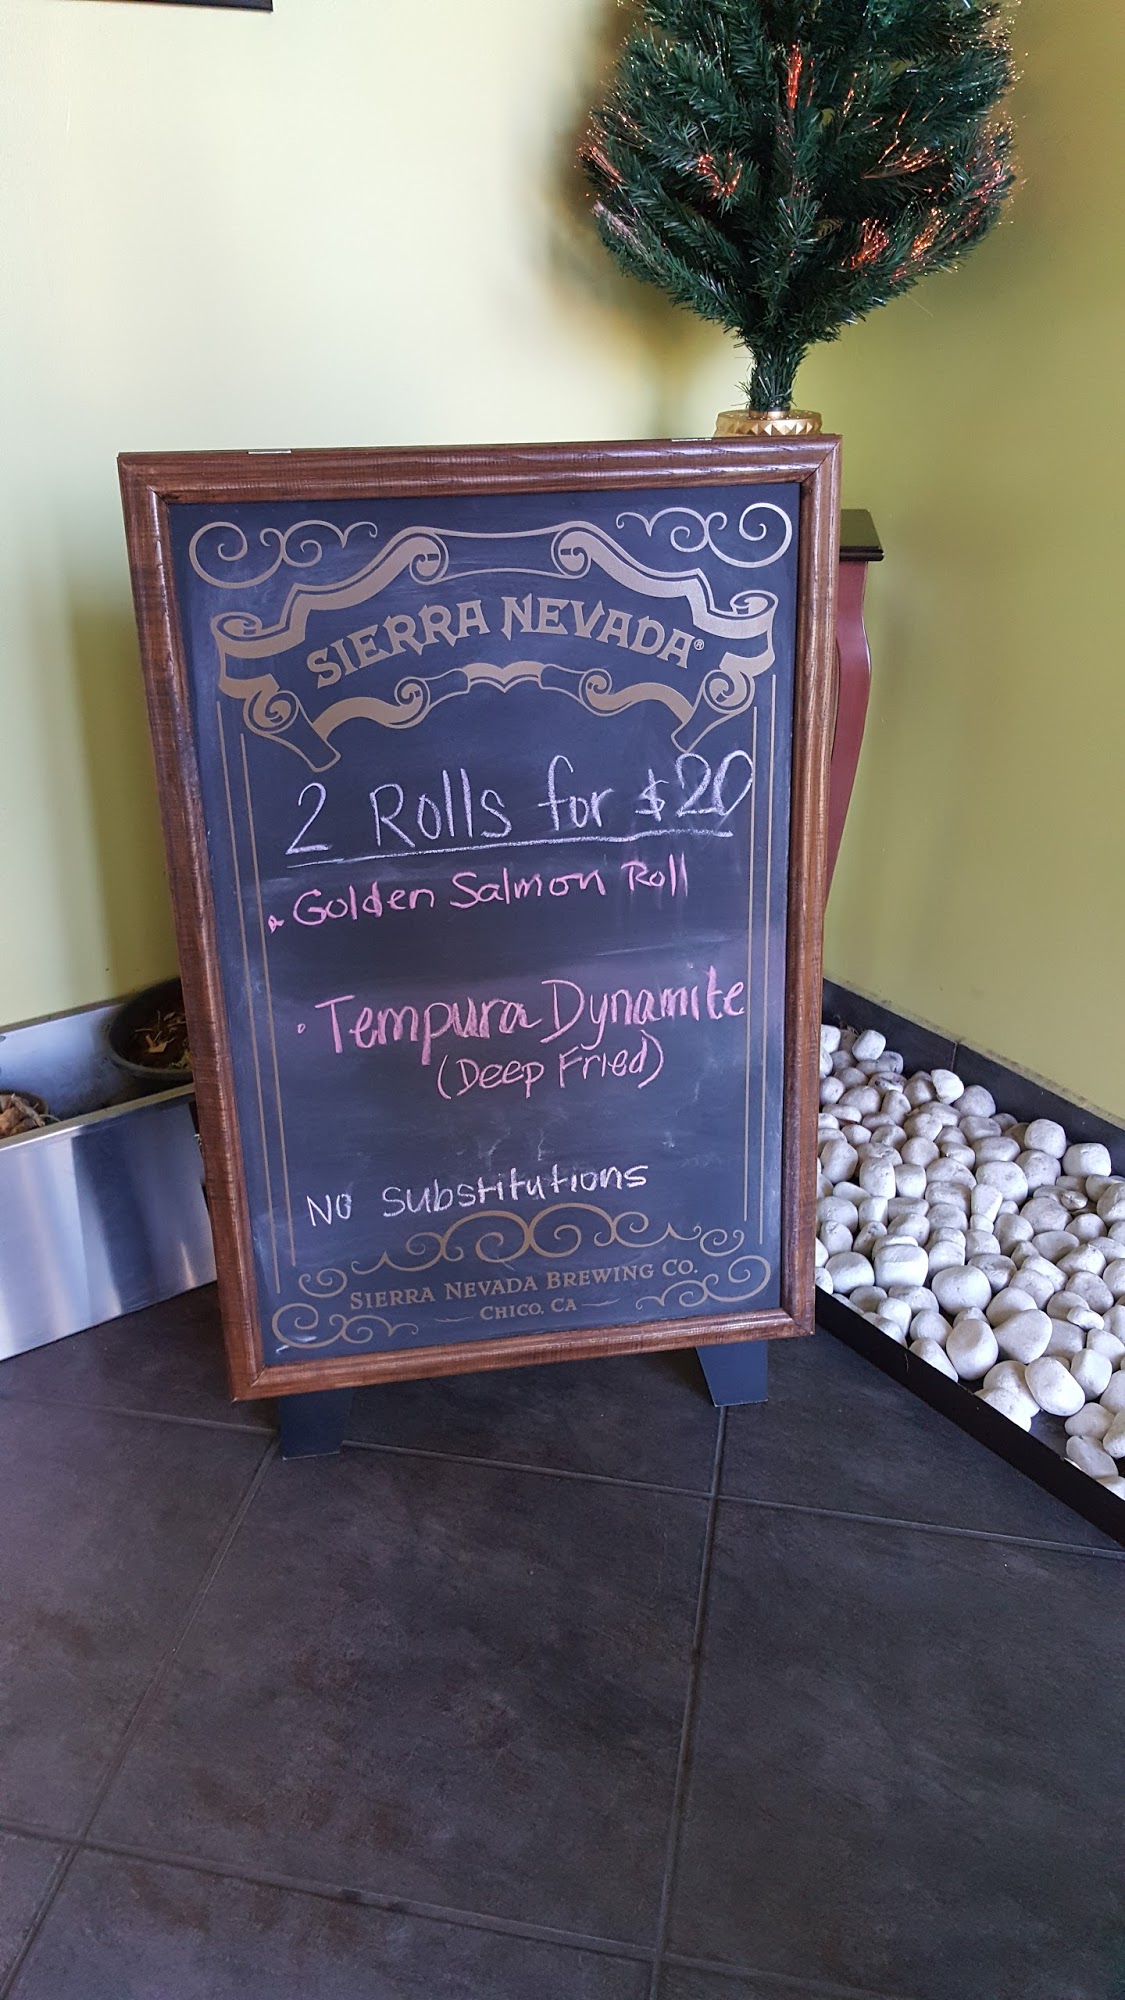 SIERRA NEVADA®
2 Rolls for $20
• Golden Salmon Roll
• Tempura Dynamite
(Deep Fried)
No substitutions
SIERRA NEVADA BREWING CO.
CHICO, CA